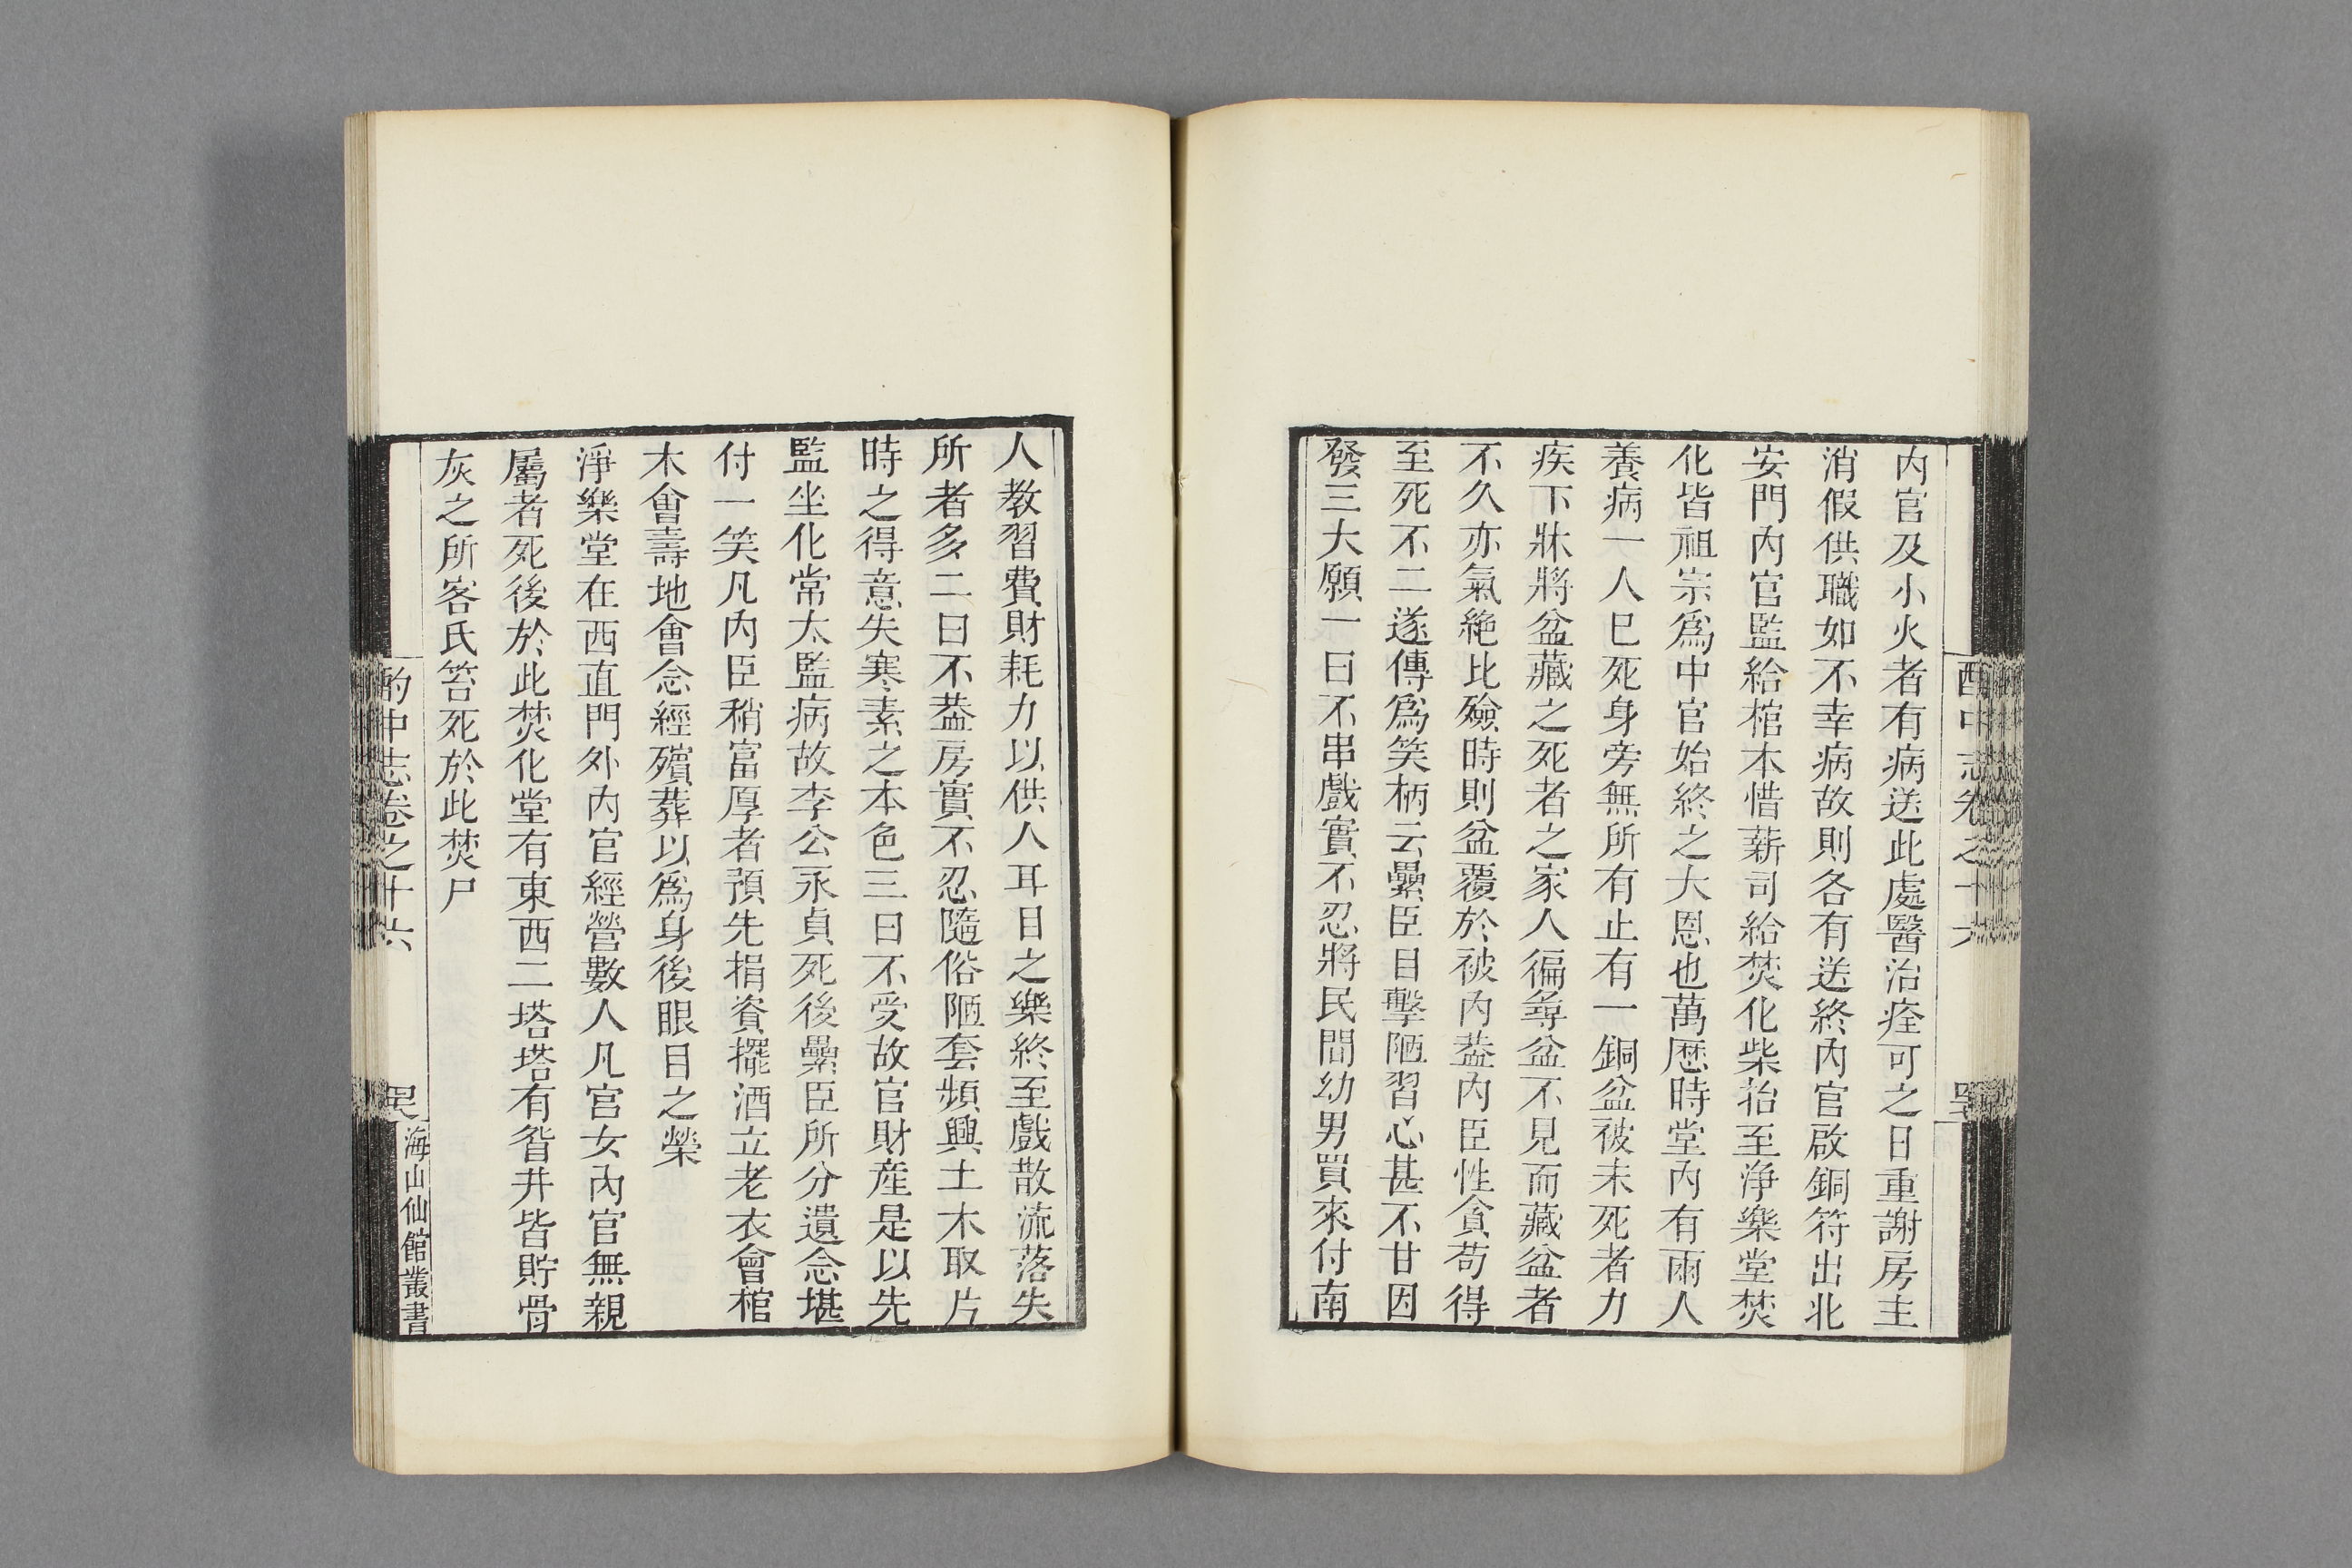 内官及小火者有病送此處醫治痊可之日重謝房主
消假供職如不幸病故則各有送終內官啟銅符出北
安門內官監給棺本惜薪司給焚化柴抬至淨樂堂焚
化皆祖宗爲中官始終之大恩也萬歷時堂內有兩人
養病一人巳死身旁無所有止有一銅盆被未死者力
疾下牀將盆藏之死者之家人徧尋盆不見而藏盆者
不久亦氣絶比殮時則盆覆於被內葢內臣性貪苟得
至死不二遂傳爲笑柄云纍臣目擊陋習心甚不甘因
發三大願一曰不串戲實不忍將民間幼男買來付南
酌中志卷之十六
人教習費財耗力以供人耳目之樂終至戲散流落失
所者多二曰不葢房實不忍隨俗陋套頻興土木取片
時之得意失寒素之本色三曰不受故官財產是以先
監坐化常太監病故李公永貞死後纍臣所分遺念堪
付一笑凡內臣稍富厚者預先捐資擺酒立老衣會棺
木會壽地會念經殯葬以爲身後眼目之榮
淨樂堂在西直門外內官經營數人凡官女內官無親
屬者死後於此焚化堂有東西二塔塔有眢井皆貯骨
灰之所客氏笞死於此焚尸
酌中志卷之十六
海山仙館叢書